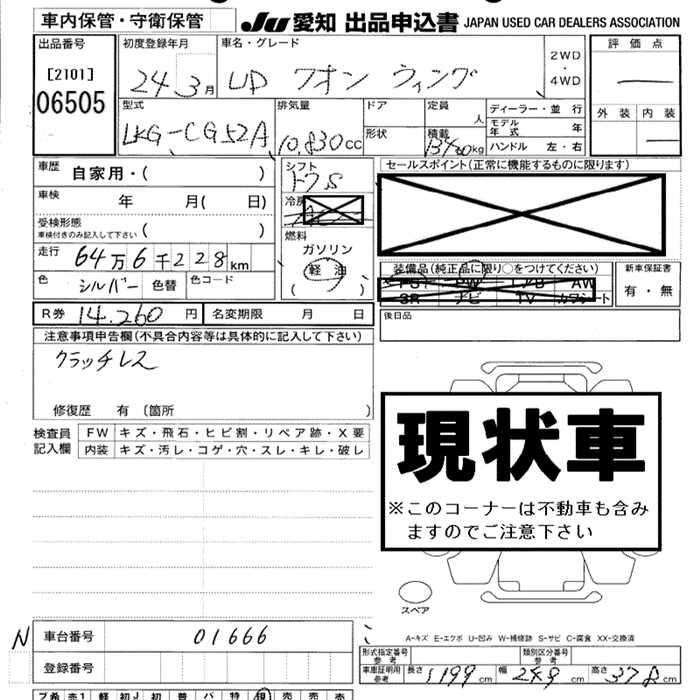 車内保管・守衛保管
JU 愛知 出品申込書 JAPAN USED CAR DEALERS ASSOCIATION
出品番号
[2101]
06505
初度登録年月
24年3月
車名・グレード
UD クオン ウィング
2WD
・
4WD
評価点
外装 内装
型式
LKG-CG52A
排気量
10,830cc
ドア
形状
定員
人
積載
kg
ディーラー・並行
モデル年式 年
ハンドル 左・右
車歴
自家用・( )
車検
年 月( 日)
受検形態
車検付きのみ記入して下さい ( )
走行
64万6千228km
色
シルバー
色替
色コード
シフト
冷房
燃料
ガソリン
(軽油)
セールスポイント(正常に機能するものに限ります)
装備品(純正品に限り○をつけてください)
PS PW エアB AW
SR ナビ TV カワシート
新車保証書
有・無
後日品
R券 14,260円
名変期限 月 日
注意事項申告欄(不具合内容等は具体的に記入して下さい)
クラッチレス
修復歴 有 〔箇所 〕
検査員
記入欄
FW キズ・飛石・ヒビ割・リペア跡・X要
内装 キズ・汚レ・コゲ・穴・スレ・キレ・破レ
現状車
※このコーナーは不動車も含み
ますのでご注意下さい
スペア
A-キズ E-エクボ U-凹み W-補修跡 S-サビ C-腐食 XX-交換済
N
車台番号
01666
登録番号
形式指定番号
参考
類別区分番号
参考
車庫証明用
参考
長さ 1199cm
幅 249cm
高さ 378cm